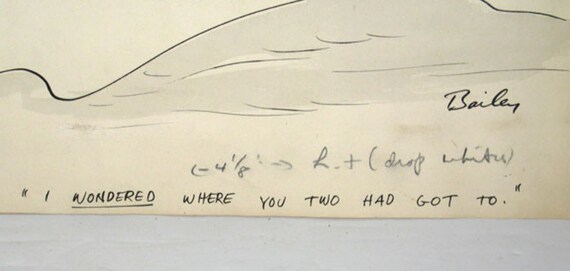 Bailey
←4 1/8"→ h.t (drop whites)
" I WONDERED WHERE YOU TWO HAD GOT TO."